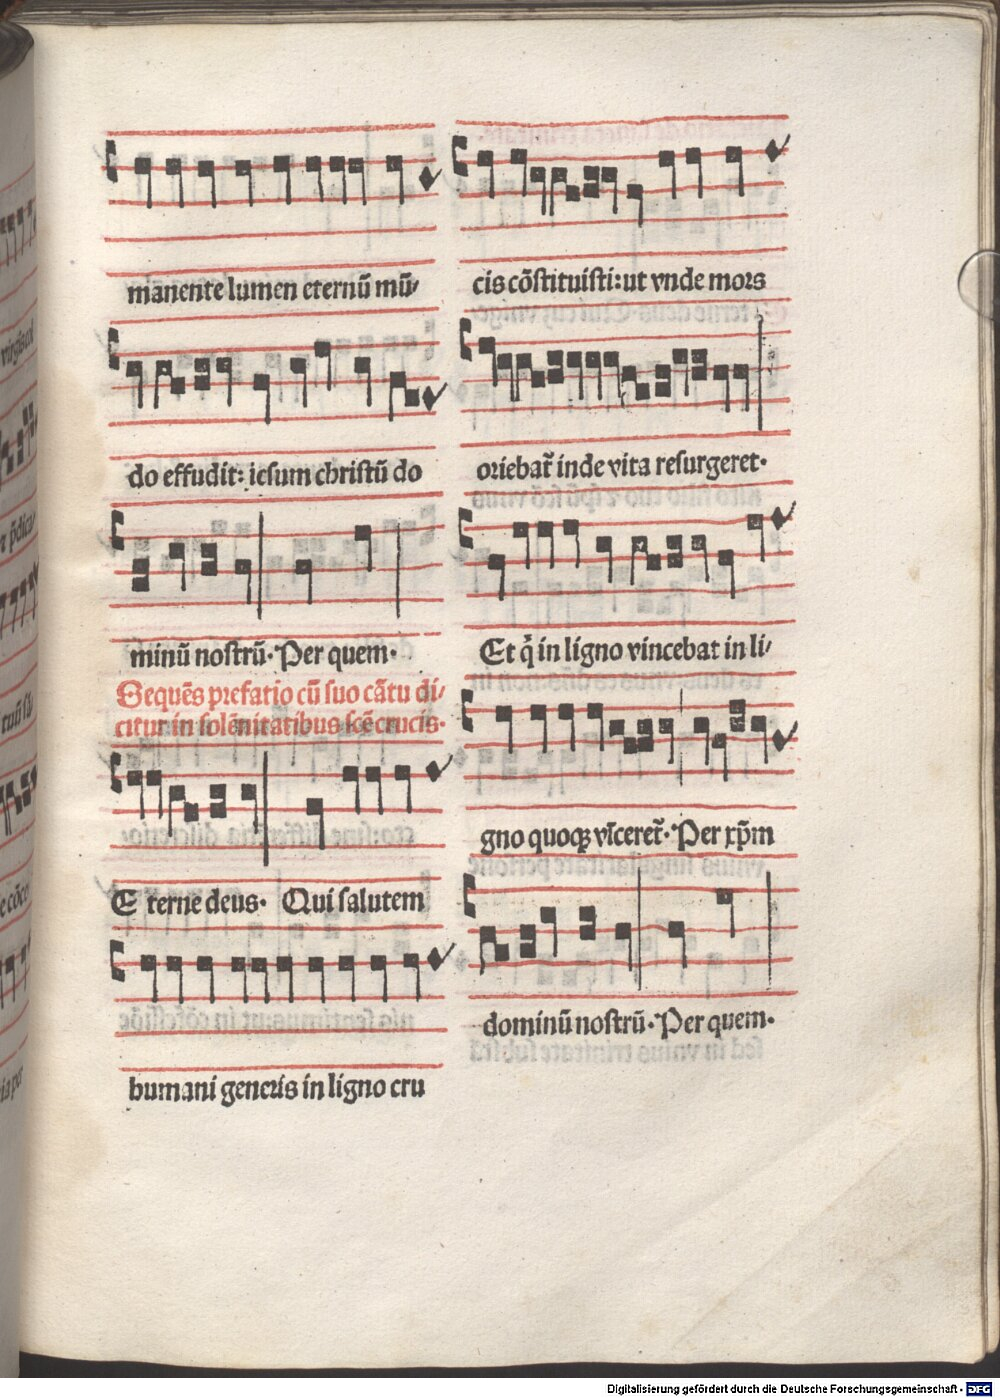 manente lumen eternū mū/
do effudit: iesum christū do
minū nostrū. Per quem.
Sequēs prefatio cū suo cātu di/
citur in solēnitatibus scē crucis.
Eterne deus. Qui salutem
humani generis in ligno cru
cis cōstituisti: ut vnde mors
oriebat᷑ inde vita resurgeret.
Et q̄ in ligno vincebat in li/
gno quoqꝫ vīceret᷑. Per xp̄m
dominū nostrū. Per quem.
Digitalisierung gefördert durch die Deutsche Forschungsgemeinschaft - DFG